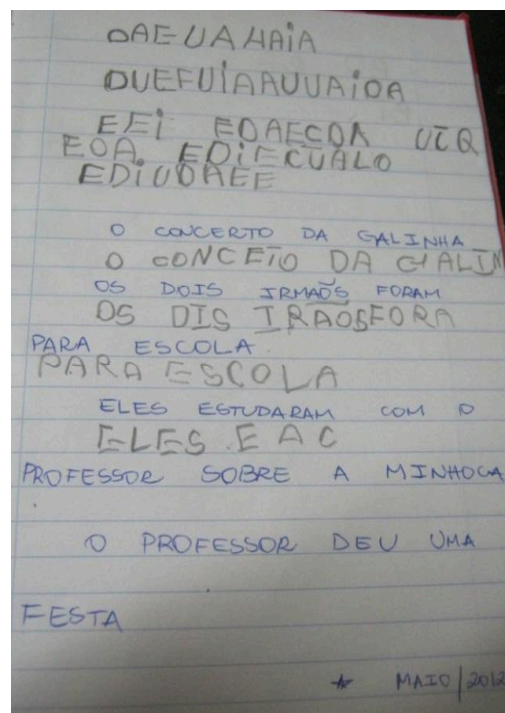 OAEUAHAiA
OUEFUiAAUUAiOA
EFi EOAECOA UIQ
EOA. EDiECUALO
EDiUOAEE
O CONCERTO DA GALINHA
O CONCETO DA GALIN
OS DOIS IRMAÕS FORAM
OS DIS IRAÕSFORA
PARA ESCOLA.
PARA ESCOLA
ELES ESTUDARAM COM O
ELES.EAC
PROFESSOR SOBRE A MINHOCA
O PROFESSOR DEU UMA
FESTA
★ MAIO/2012